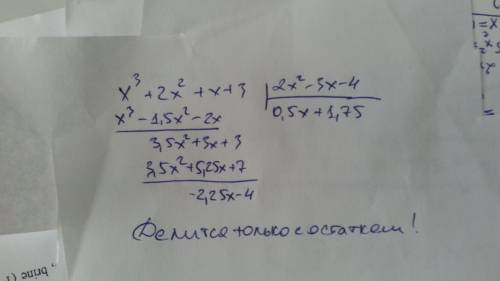 x³ + 2x² + x + 3 | 2x² - 3x - 4
x³ - 1,5x² - 2x 0,5x + 1,75
3,5x² + 3x + 3
3,5x² + 5,25x + 7
-2,25x - 4
Делится только с остатком!
, brine (1